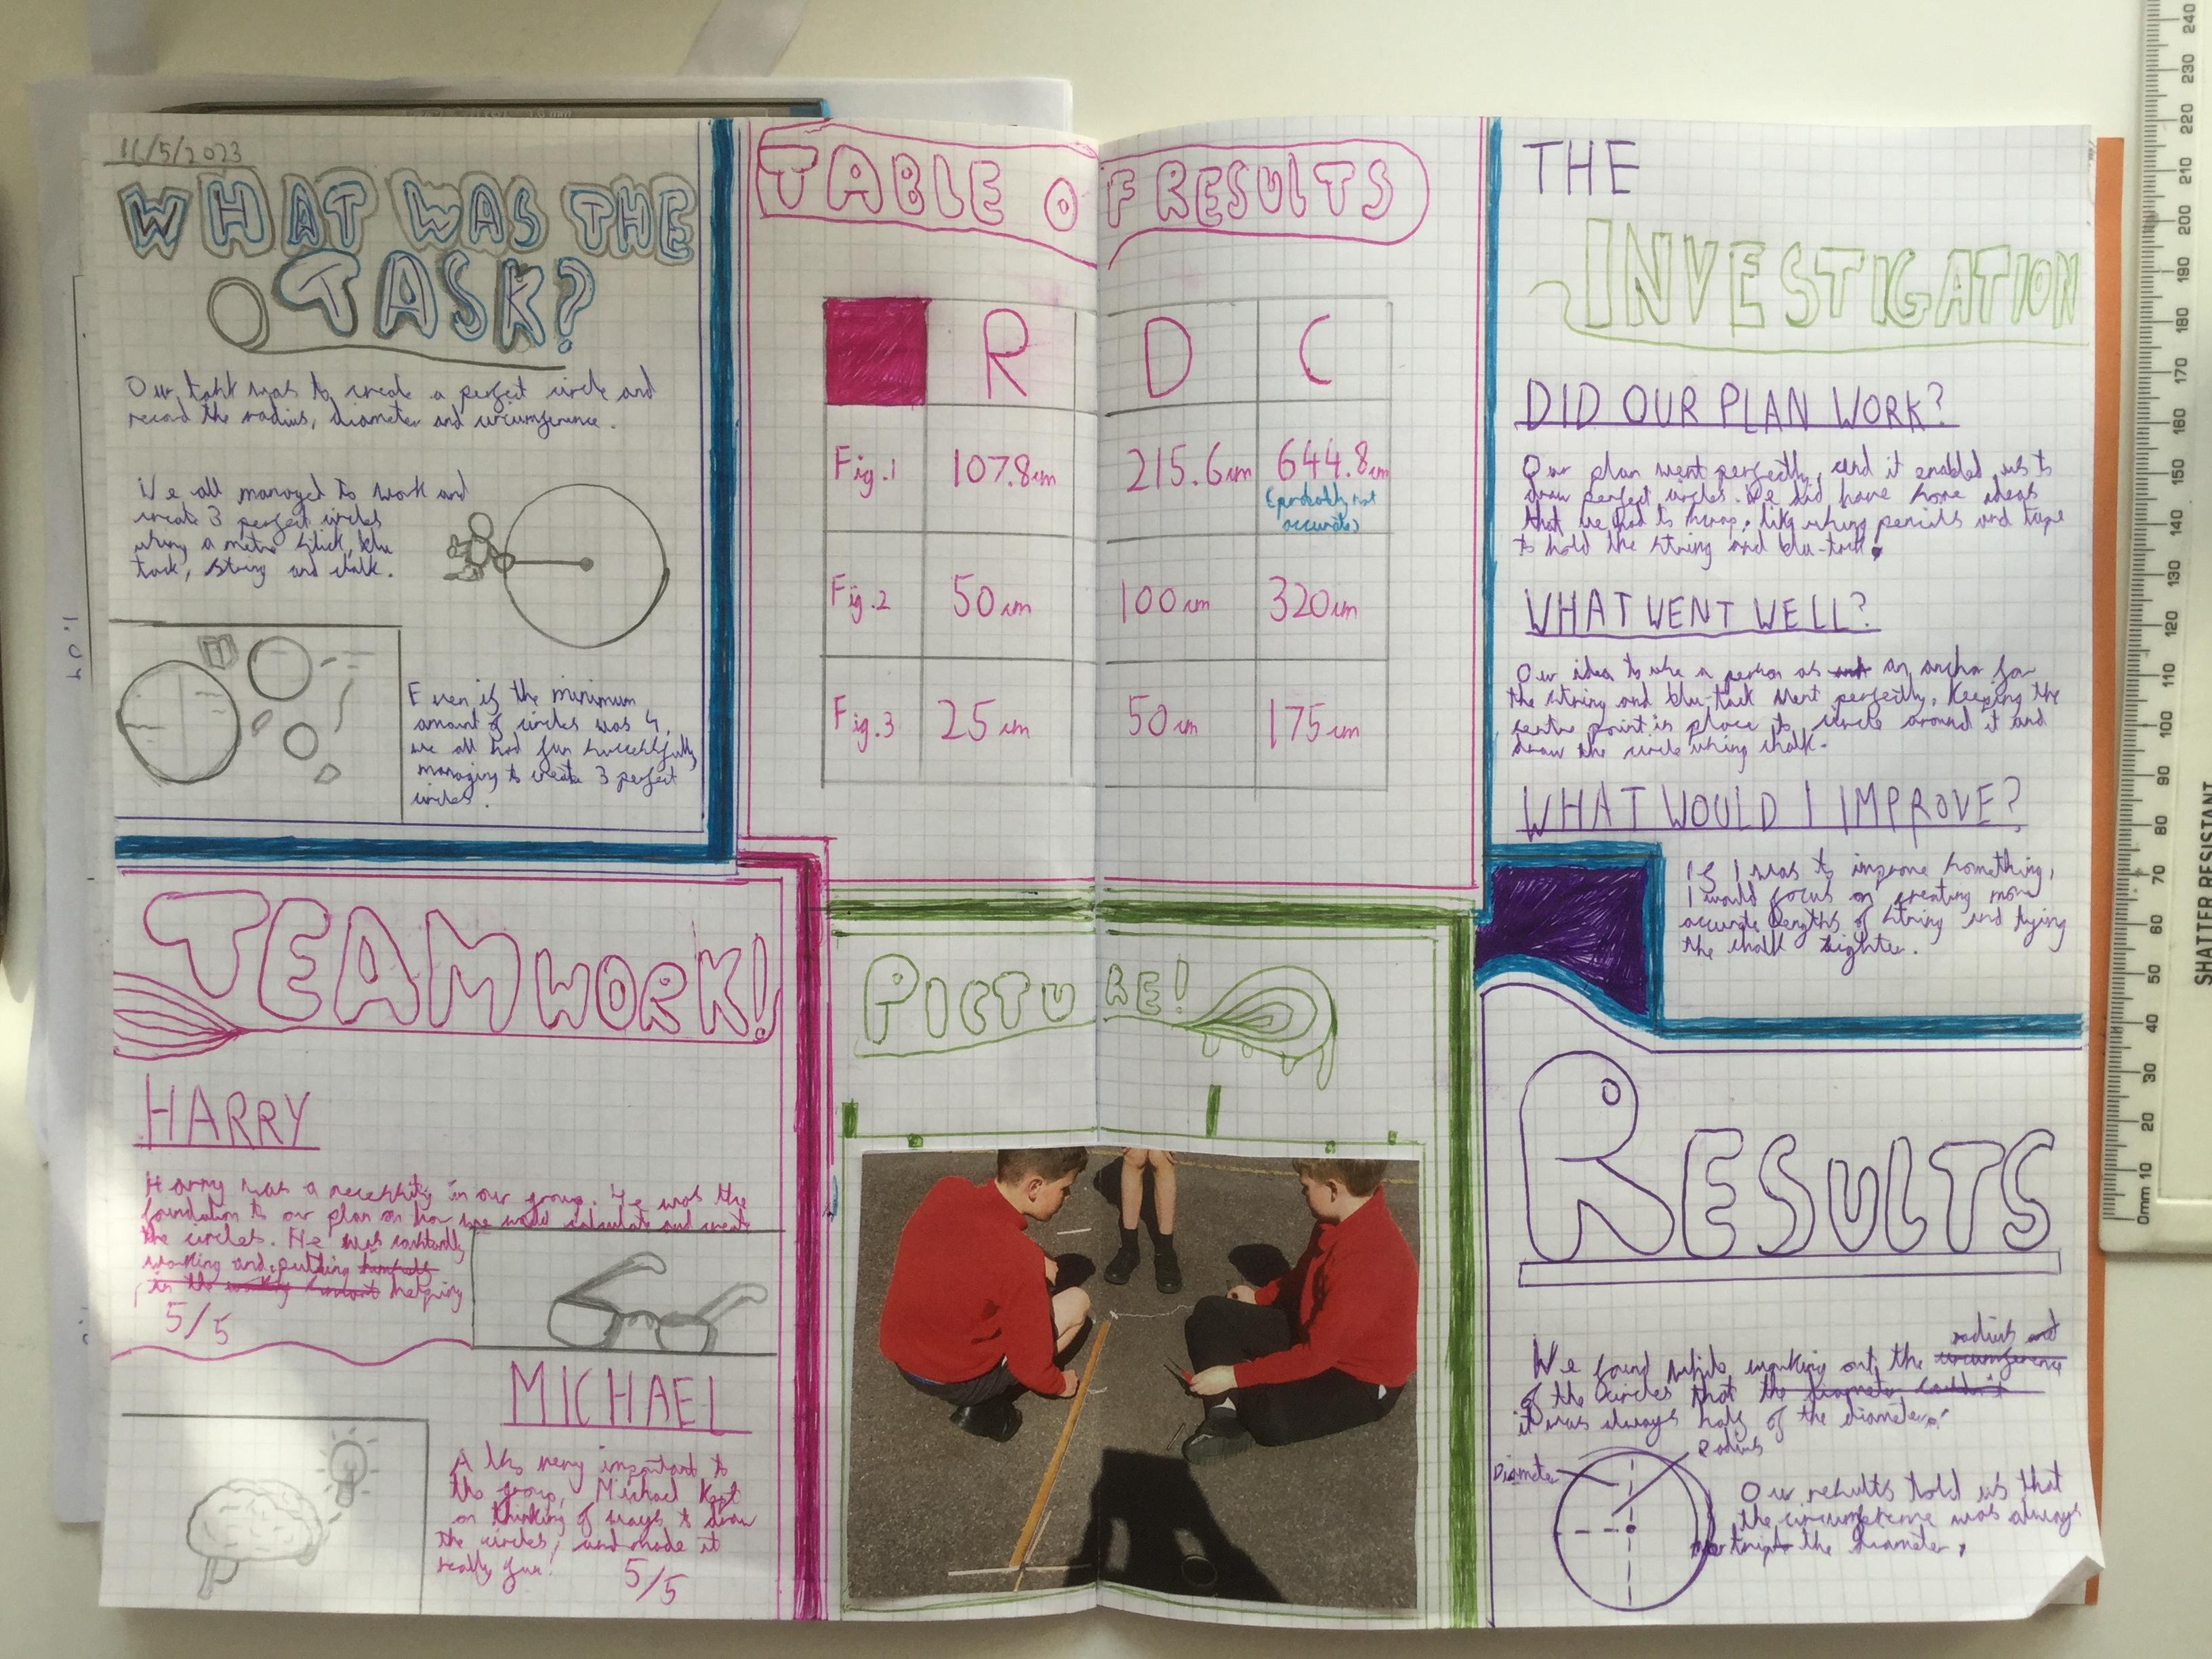 16/5/2023
WHAT WAS THE
TASK?
Our task was to create a perfect circle and
record the radius, diameter and circumference.
We all managed to work and
create 3 perfect circles
using a metre stick, blu
tack, string and chalk.
Even if the minimum
amount of circles was 4,
we all had fun successfully
managing to create 3 perfect
circles.
TEAMWORK!
HARRY
Harry was a necessity in our group. He was the
foundation to our plan on how we would calculate and create
the circles. He was constantly
working and putting himself
in the helping
5/5
MICHAEL
Also very important to
the group, Michael kept
on thinking of ways to draw
the circles, and made it
really fun!
5/5
TABLE OF RESULTS
R D C
Fig.1 107.8cm 215.6cm 644.8cm
(probably not
accurate)
Fig.2 50cm 100cm 320cm
Fig.3 25cm 50cm 175cm
PICTURE!
THE
INVESTIGATION
DID OUR PLAN WORK?
Our plan went perfectly, and it enabled us to
draw perfect circles. We did have some ideas
that we had to scrap, like using pencils and tape
to hold the string and blu-tack.
WHAT WENT WELL?
Our idea to use a person as an anchor for
the string and blu-tack went perfectly, keeping the
centre point in place to circle around it and
draw the circle using chalk.
WHAT WOULD I IMPROVE?
If I was to improve something,
I would focus on creating more
accurate lengths of string and tying
the chalk tighter.
RESULTS
radius and
We found while working out the circumference
of the circles that the diameter couldn't
it was always half of the diameter.
Radius
Diameter
Our results told us that
the circumference was always
triple the diameter.
240
230
220
210
200
190
180
170
160
150
140
130
120
110
100
90
80
70
60
50
40
30
20
10
0mm
SHATTER RESISTANT